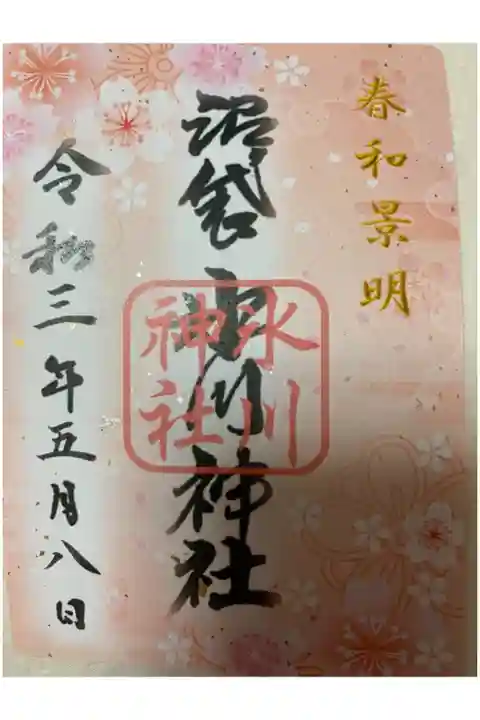 春和景明
沼袋氷川神社
氷川
神社
令和三年五月八日